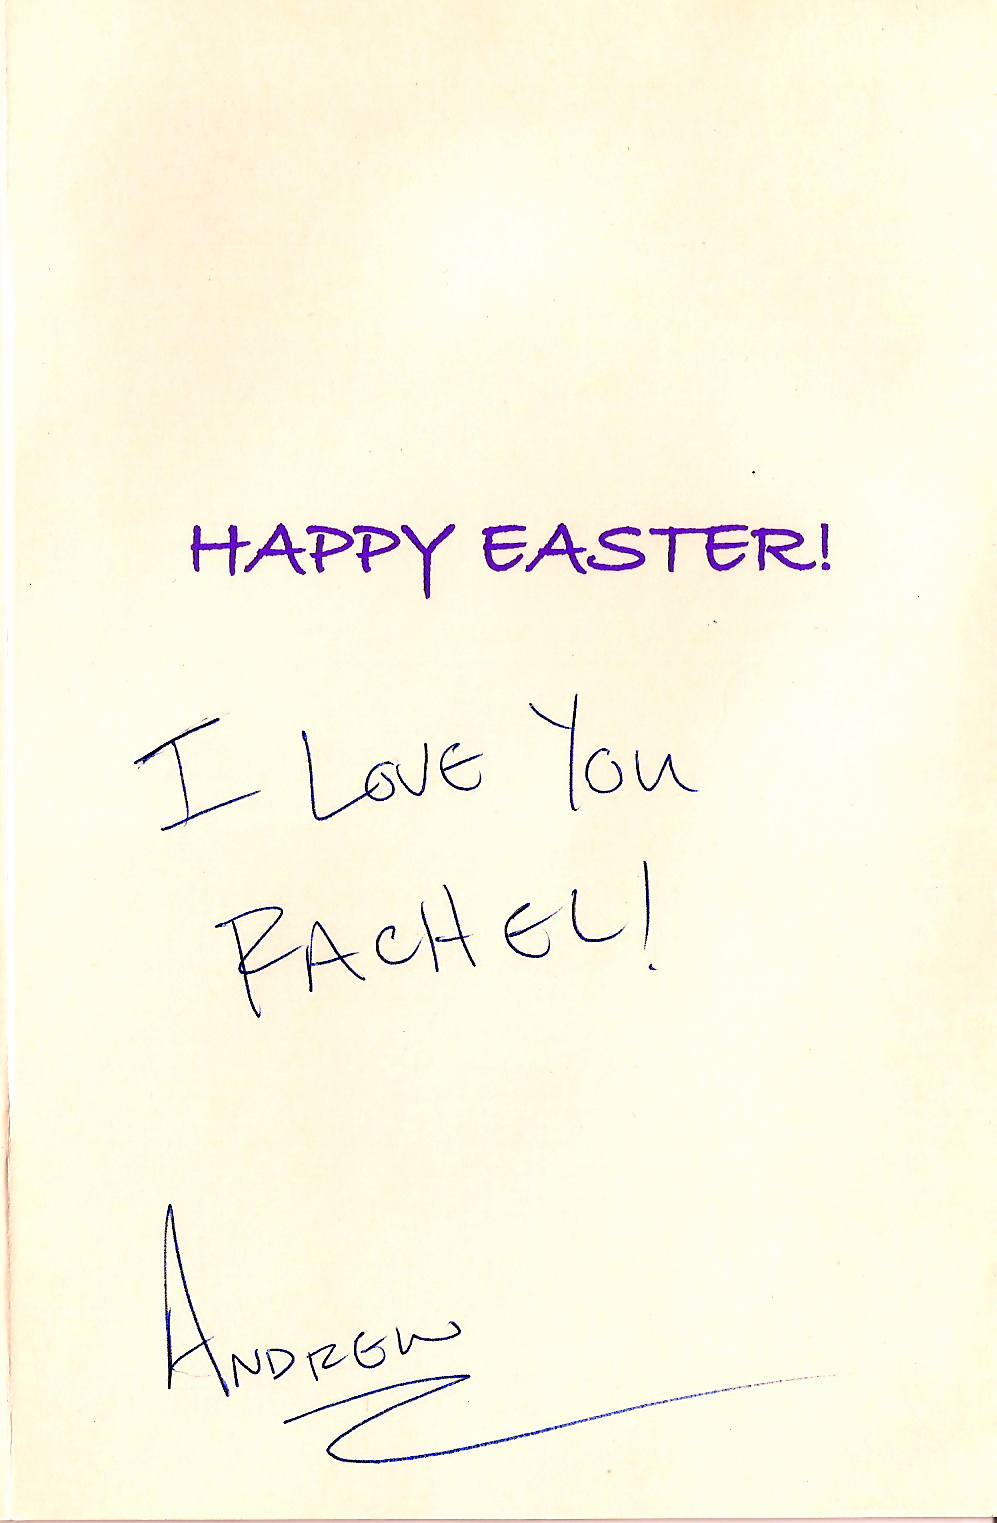 HAPPY EASTER!
I LOVE YOU
RACHEL!
ANDREW